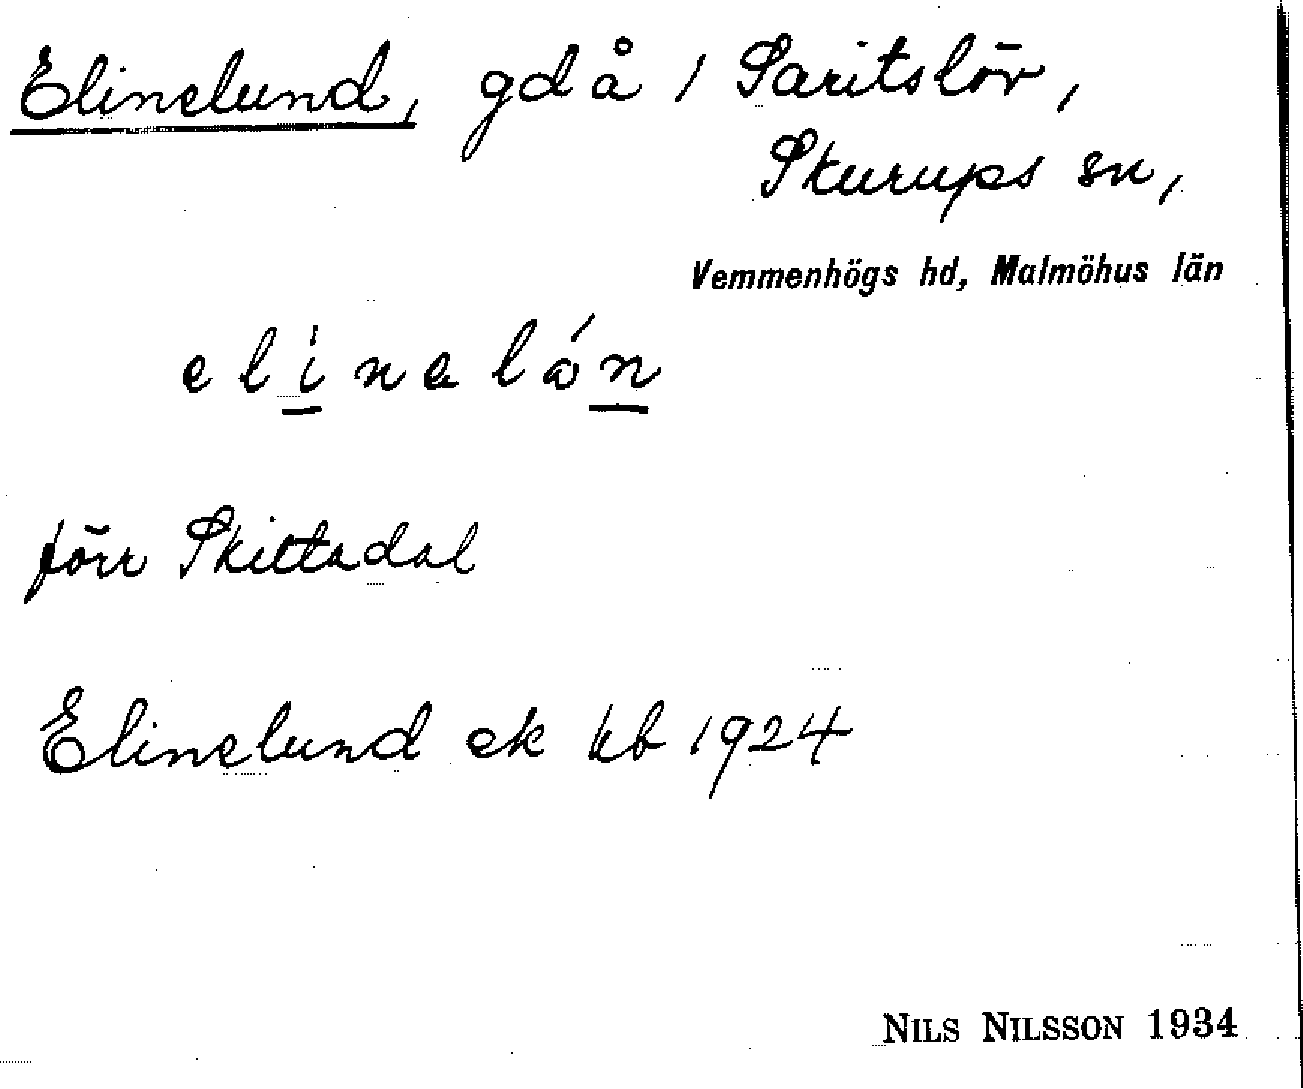 Elinelund, gd å 1 Saritslöv,
Skurups sn,
Vemmenhögs hd, Malmöhus län
elinalón
förr Skittadal
Elinelund ek kb 1924
NILS NILSSON 1934